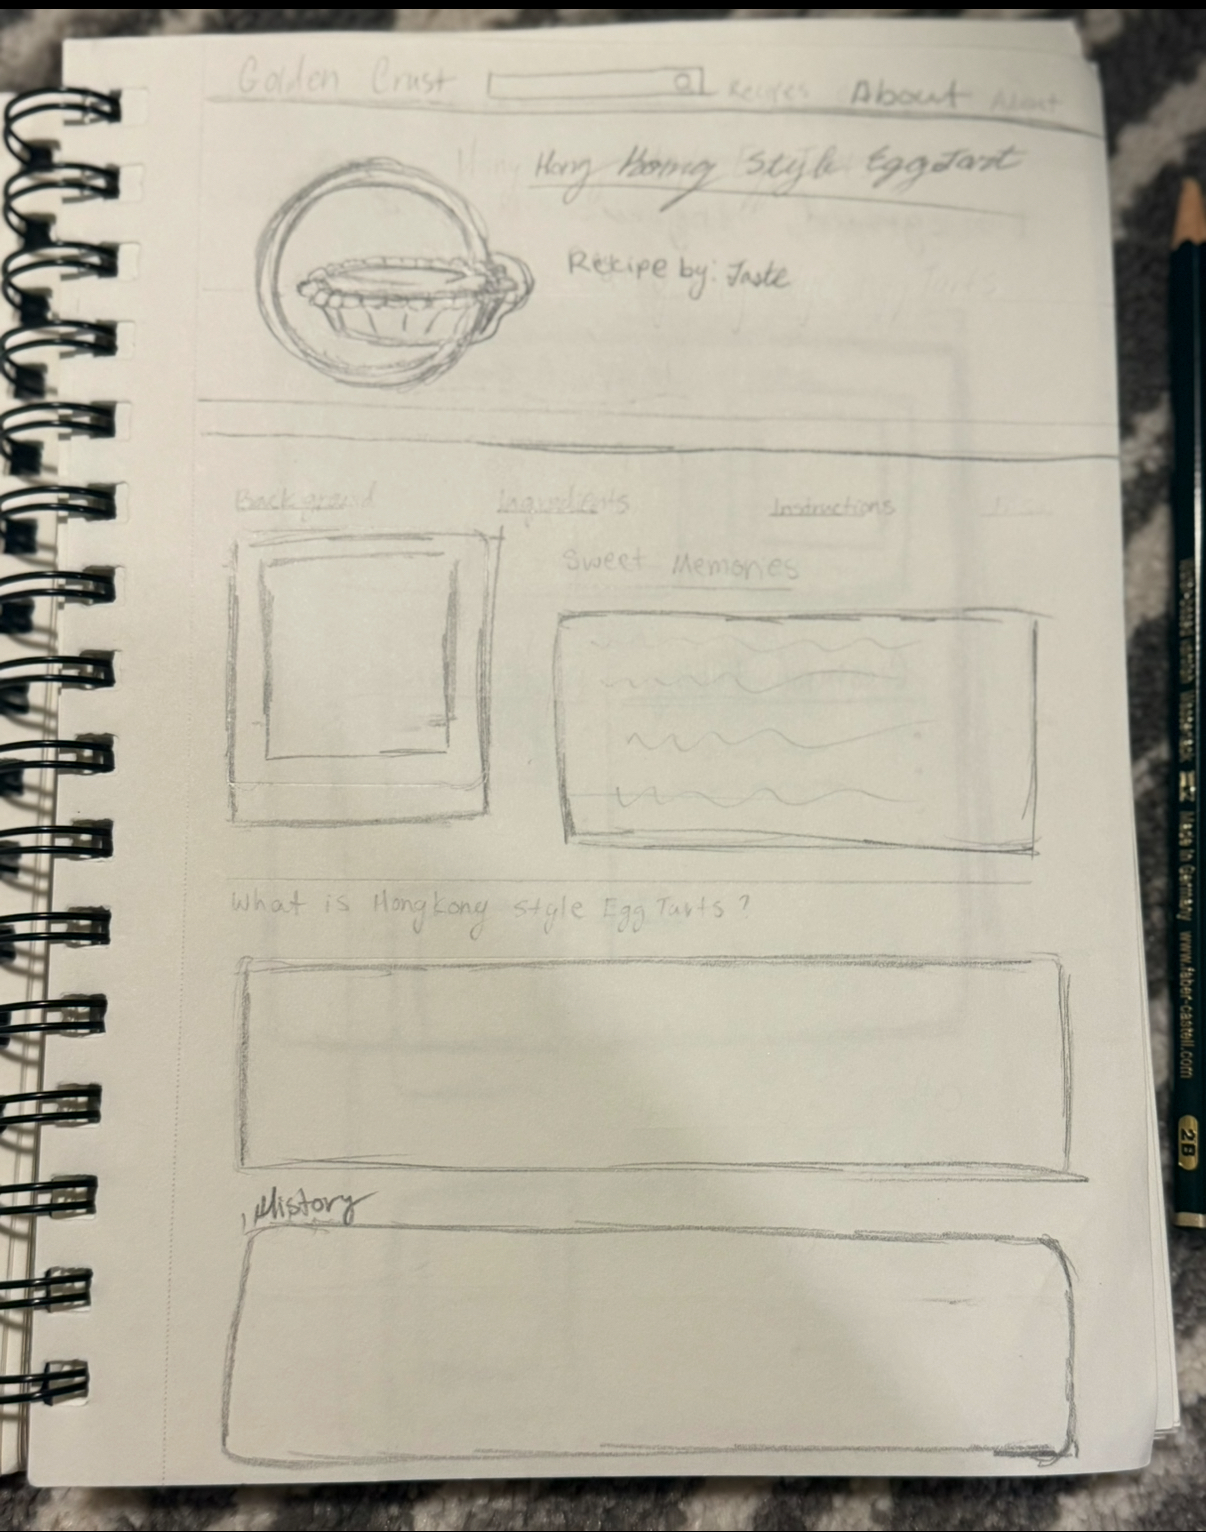 Golden Crust Recipes About About
Hong Kong Style Egg Tart
Recipe by: Taste
Tarts
Background Ingredients Instructions
Sweet Memories
What is Hongkong style Egg Tarts ?
History
Made in Germany www.faber-castell.com 2B